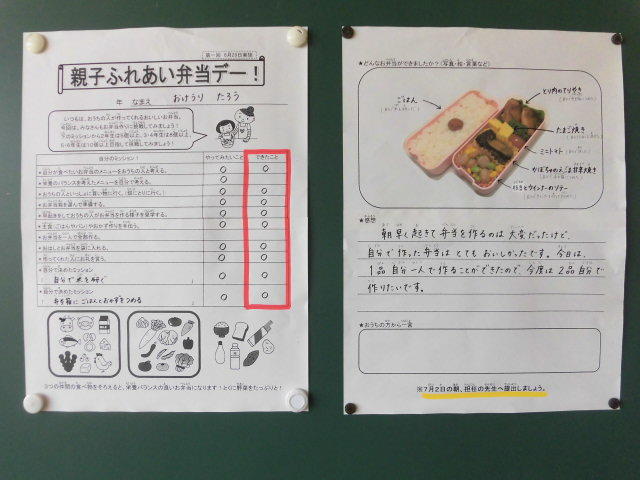 第一回 6月28日実施
親子ふれあい弁当デー！
年 なまえ おけうり たろう
いつもは、おうちの人が作ってくれるおいしいお弁当。
今回は、みなさんもお弁当作りに挑戦してみましょう！
下のミッションから2年生は5個以上、3・4年生は8個以上、
5・6年生は10個以上目指して挑戦してみましょう！
自分のミッション！ やってみたいこと できたこと
自分が食べたいお弁当のメニューをおうちの人と考える。 ○ ○
栄養のバランスを考えたメニューを自分で考える。 ○
おうちの人といっしょに買い物に行く。 ○ ○
お弁当箱を選んで準備する。 ○ ○
早起きをしておうちの人がお弁当を作る様子を見学する。 ○ ○
主食（ごはんやパン）やおかず作りを手伝う。 ○ ○
お弁当を一人で全部作る。 ○
おはしとお弁当を袋に入れる。 ○ ○
作ってくれた人にお礼を言う。 ○ ○
自分で決めたミッション
自分で米を研ぐ ○ ○
自分で決めたミッション
弁当箱にごはんとおかずをつめる ○ ○
3つの仲間の食べ物をそろえると、栄養バランスの良いお弁当になります！とくに野菜をたっぷりと！
★どんなお弁当ができましたか？（写真・絵・言葉など）
ごはん
とり肉のてりやき
たまご焼き
ミニトマト
かぼちゃのえごま甘辛焼き
枝豆とウインナーのソテー
★感想
朝早く起きて弁当を作るのは大変だったけど、
自分で作った弁当はとてもおいしかったです。今日は、
1品自分一人で作ることができたので、今度は2品自分で
作りたいです。
★おうちの方から一言
※7月2日の朝、担任の先生へ提出しましょう。